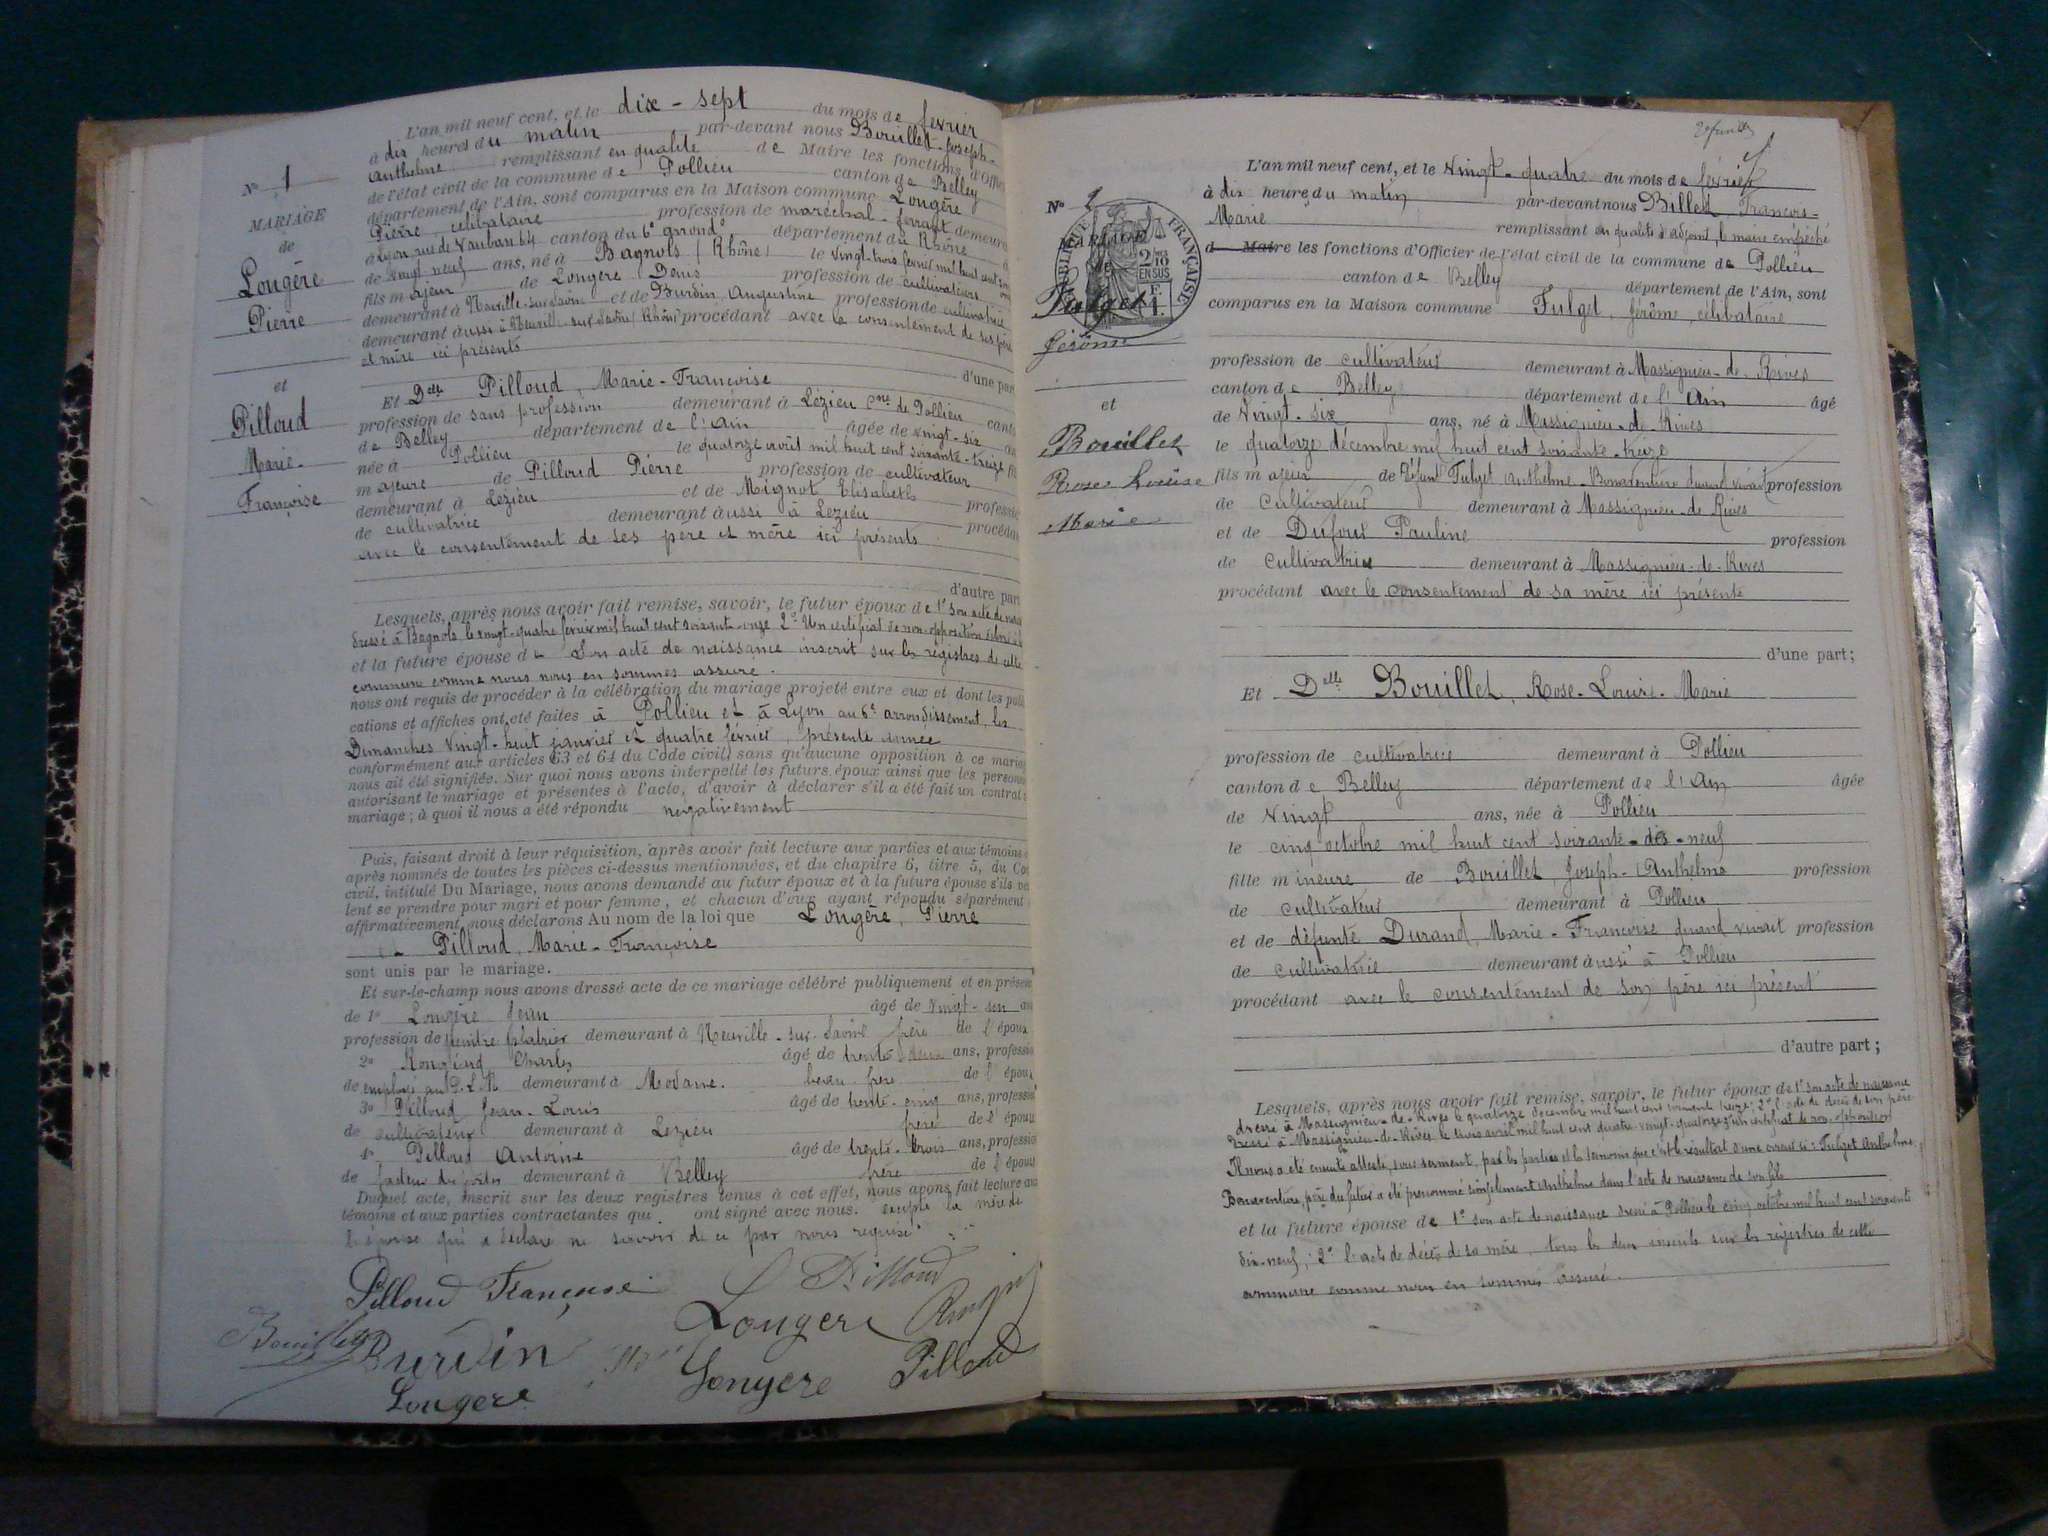 L'an mil neuf cent, et le dix-sept du mois de février
à dix heures du matin par-devant nous Bouillet Joseph-
Anthelme remplissant en qualité de Maire les fonctions d'Offi
de l'état civil de la commune de Pollieu canton de Belley
département de l'Ain, sont comparus en la Maison commune Lougère
Pierre, célibataire profession de maréchal-ferrant demeura
à Lyon, rue de Vauban 64 canton du 6e arrond département du Rhône
de vingt neuf ans, né à Bagnols (Rhône) le vingt-trois février mil huit cent
fils majeur de Lougere Denis profession de cultivateur
demeurant à Neuville-sur-Saône et de Burdin Augustine profession de cultivatrice
demeurant aussi à Neuville-sur-Saône (Rhône) procédant avec le consentement de ses père
et mère ici présents
d'une part
N° 1
MARIAGE
de
Lougère
Pierre
et
Pilloud
Marie-
Françoise
Et Delle Pilloud, Marie-Françoise
profession de sans profession demeurant à Lézieu Cne de Pollieu cant
de Belley département de l'Ain âgée de vingt-six
née à Pollieu le quatorze août mil huit cent soixante-treize fi
majeure de Pilloud Pierre profession de cultivateur
demeurant à Lezieu et de Moignot Elisabeth professio
de cultivatrice demeurant aussi à Lezieu procédan
avec le consentement de ses père et mère ici présents
d'autre part
Lesquels, après nous avoir fait remise, savoir, le futur époux de 1° son acte de
dressé à Bagnols le vingt-quatre février mil huit cent soixante-onze 2° Un certificat de non-opposition
et la future épouse de Son acte de naissance inscrit sur les registres de cette
commune comme nous nous en sommes assuré.
nous ont requis de procéder à la célébration du mariage projeté entre eux et dont les publi
cations et affiches ont été faites à Pollieu et à Lyon au 6e arrondissement, les
Dimanches vingt-huit janvier et quatre février, présente année
conformément aux articles 63 et 64 du Code civil, sans qu'aucune opposition à ce maria
nous ait été signifiée. Sur quoi nous avons interpellé les futurs époux ainsi que les personn
autorisant le mariage et présentes à l'acte, d'avoir à déclarer s'il a été fait un contrat
mariage ; à quoi il nous a été répondu négativement
Puis, faisant droit à leur réquisition, après avoir fait lecture aux parties et aux témoins
après nommés de toutes les pièces ci-dessus mentionnées, et du chapitre 6, titre 5, du Co
civil, intitulé Du Mariage, nous avons demandé au futur époux et à la future épouse s'ils ve
lent se prendre pour mari et pour femme, et chacun d'eux ayant répondu séparément
affirmativement, nous déclarons Au nom de la loi que Lougère, Pierre
et Pilloud, Marie-Françoise
sont unis par le mariage.
Et sur-le-champ nous avons dressé acte de ce mariage célébré publiquement et en présen
de 1° Lougère Jean âgé de vingt-
profession de peintre plâtrier demeurant à Neuville-sur-Saône frère de l'époux
2° Charles âgé de trente ans, professio
de employé au P.L.M. demeurant à Modane. beau frère de l'épou
3° Pilloud Jean-Louis âgé de trente-cinq ans, professio
de cultivateur demeurant à Lezieu frère de l'épous
4° Pilloud Antoine âgé de trente-trois ans, professio
de facteur des postes demeurant à Belley frère de l'épous
Duquel acte, inscrit sur les deux registres tenus à cet effet, nous avons fait lecture aux
témoins et aux parties contractantes qui ont signé avec nous. excepté la mère de
l'épouse qui a déclaré ne savoir de ce par nous requise
Pilloud Françoise
Pilloud
Lougere
Bouillet
Burdin
Lougere
Pilloud
Lougere
N° 2
MARIAGE
RÉPUBLIQUE FRANÇAISE
2/10 EN SUS
1 F.
Fulget
Jérôme
et
Bouillet
Rose Louise
Marie
L'an mil neuf cent, et le vingt-quatre du mois de février
à dix heures du matin par-devant nous Billet François-
Marie remplissant en qualité d'adjoint, le maire empêché
de Maire les fonctions d'Officier de l'état civil de la commune de Pollieu
canton de Belley département de l'Ain, sont
comparus en la Maison commune Fulget, Jérôme, célibataire
profession de cultivateur demeurant à Massignieu-de-Rives
canton de Belley département de l'Ain âgé
de vingt-six ans, né à Massignieu-de-Rives
le quatorze décembre mil huit cent soixante-treize
fils majeur de défunt Fulget Anthelme-Bonaventure quand vivait profession
de cultivateur demeurant à Massignieu-de-Rives
et de Dufour Pauline profession
de cultivatrice demeurant à Massignieu-de-Rives
procédant avec le consentement de sa mère ici présente
d'une part;
Et Delle Bouillet, Rose-Louise-Marie
profession de cultivatrice demeurant à Pollieu
canton de Belley département de l'Ain âgée
de vingt ans, née à Pollieu
le cinq octobre mil huit cent soixante-dix-neuf
fille mineure de Bouillet, Joseph-Anthelme profession
de cultivateur demeurant à Pollieu
et de défunte Durand, Marie-Françoise quand vivait profession
de cultivatrice demeurant aussi à Pollieu
procédant avec le consentement de son père ici présent
d'autre part;
Lesquels, après nous avoir fait remise, savoir, le futur époux de 1° son acte de naissance
dressé à Massignieu-de-Rives le quatorze décembre mil huit cent soixante treize; 2° l'acte de décès de son père
dressé à Massignieu-de-Rives le trois avril mil huit cent quatre-vingt-quatorze 3° un certificat de non-opposition
Il nous a été ensuite attesté, sous serment, par les parties et les témoins que c'est le résultat d'une erreur si : Fulget Anthelme
Bonaventure, père du futur a été prénommé simplement Anthelme dans l'acte de naissance de son fils
et la future épouse de 1° son acte de naissance dressé à Pollieu le cinq octobre mil huit cent soixante
dix-neuf; 2° l'acte de décès de sa mère, tous les deux inscrits sur les registres de cette
commune comme nous en sommes assuré.